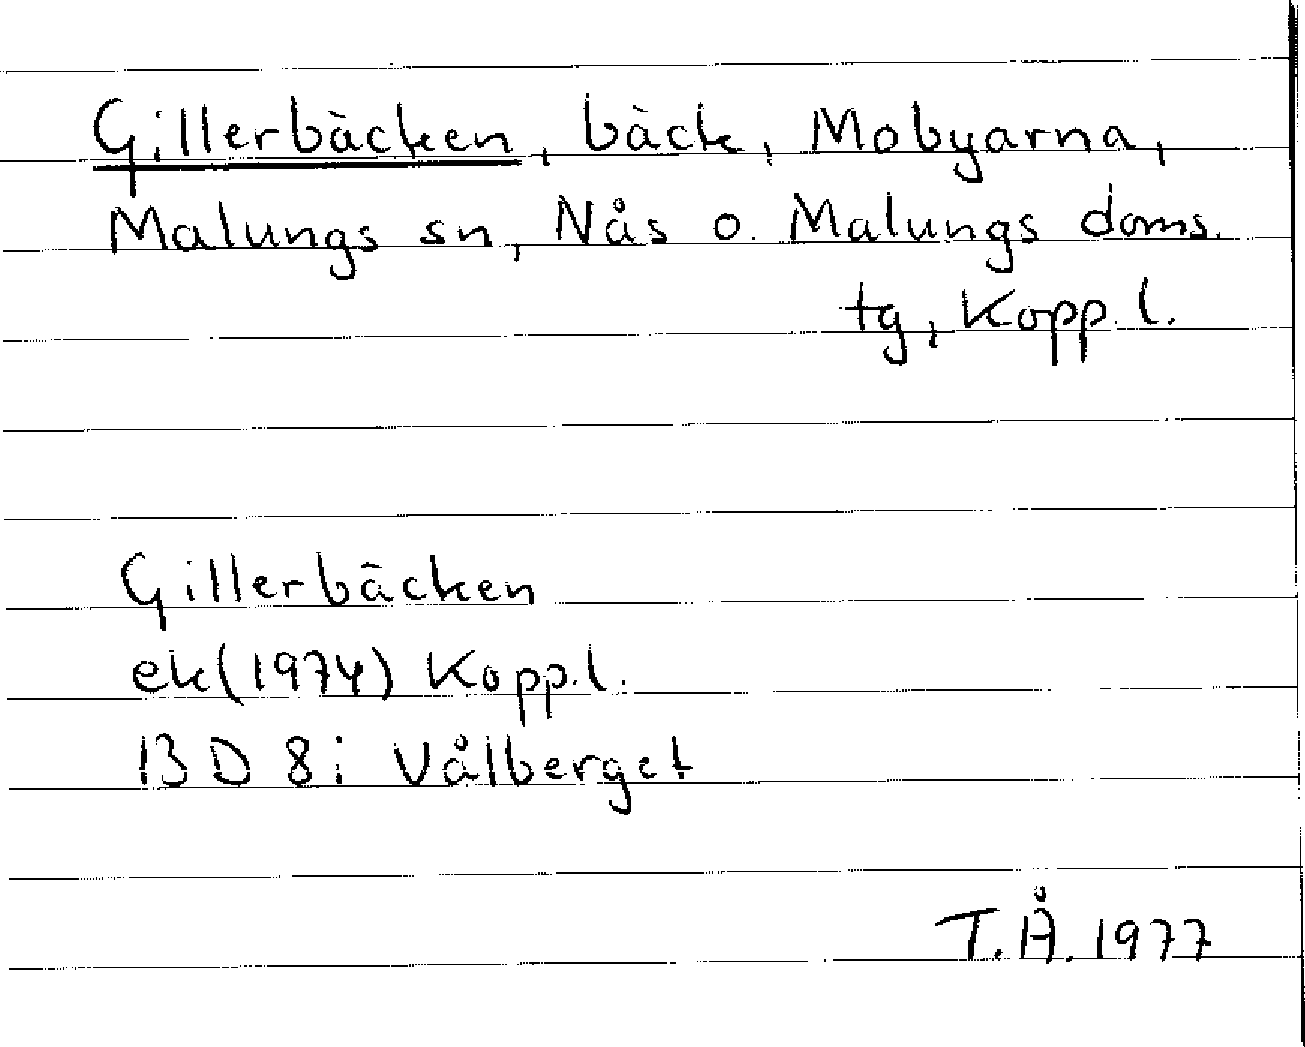 Gillerbäcken, bäck, Mobyarna,
Malungs sn, Nås o. Malungs doms.
tg, Kopp. l.
Gillerbäcken
ek(1974) Kopp.l.
13 D 8i Vålberget
T.Å. 1977